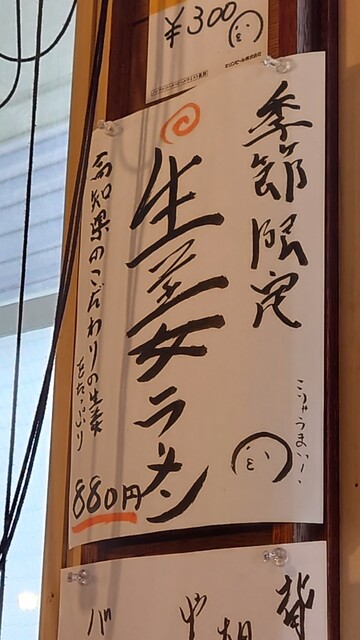 ¥300
季節限定
こりゃうまい!
生姜ラーメン
高知県のこだわりの生姜
をたっぷり
880円